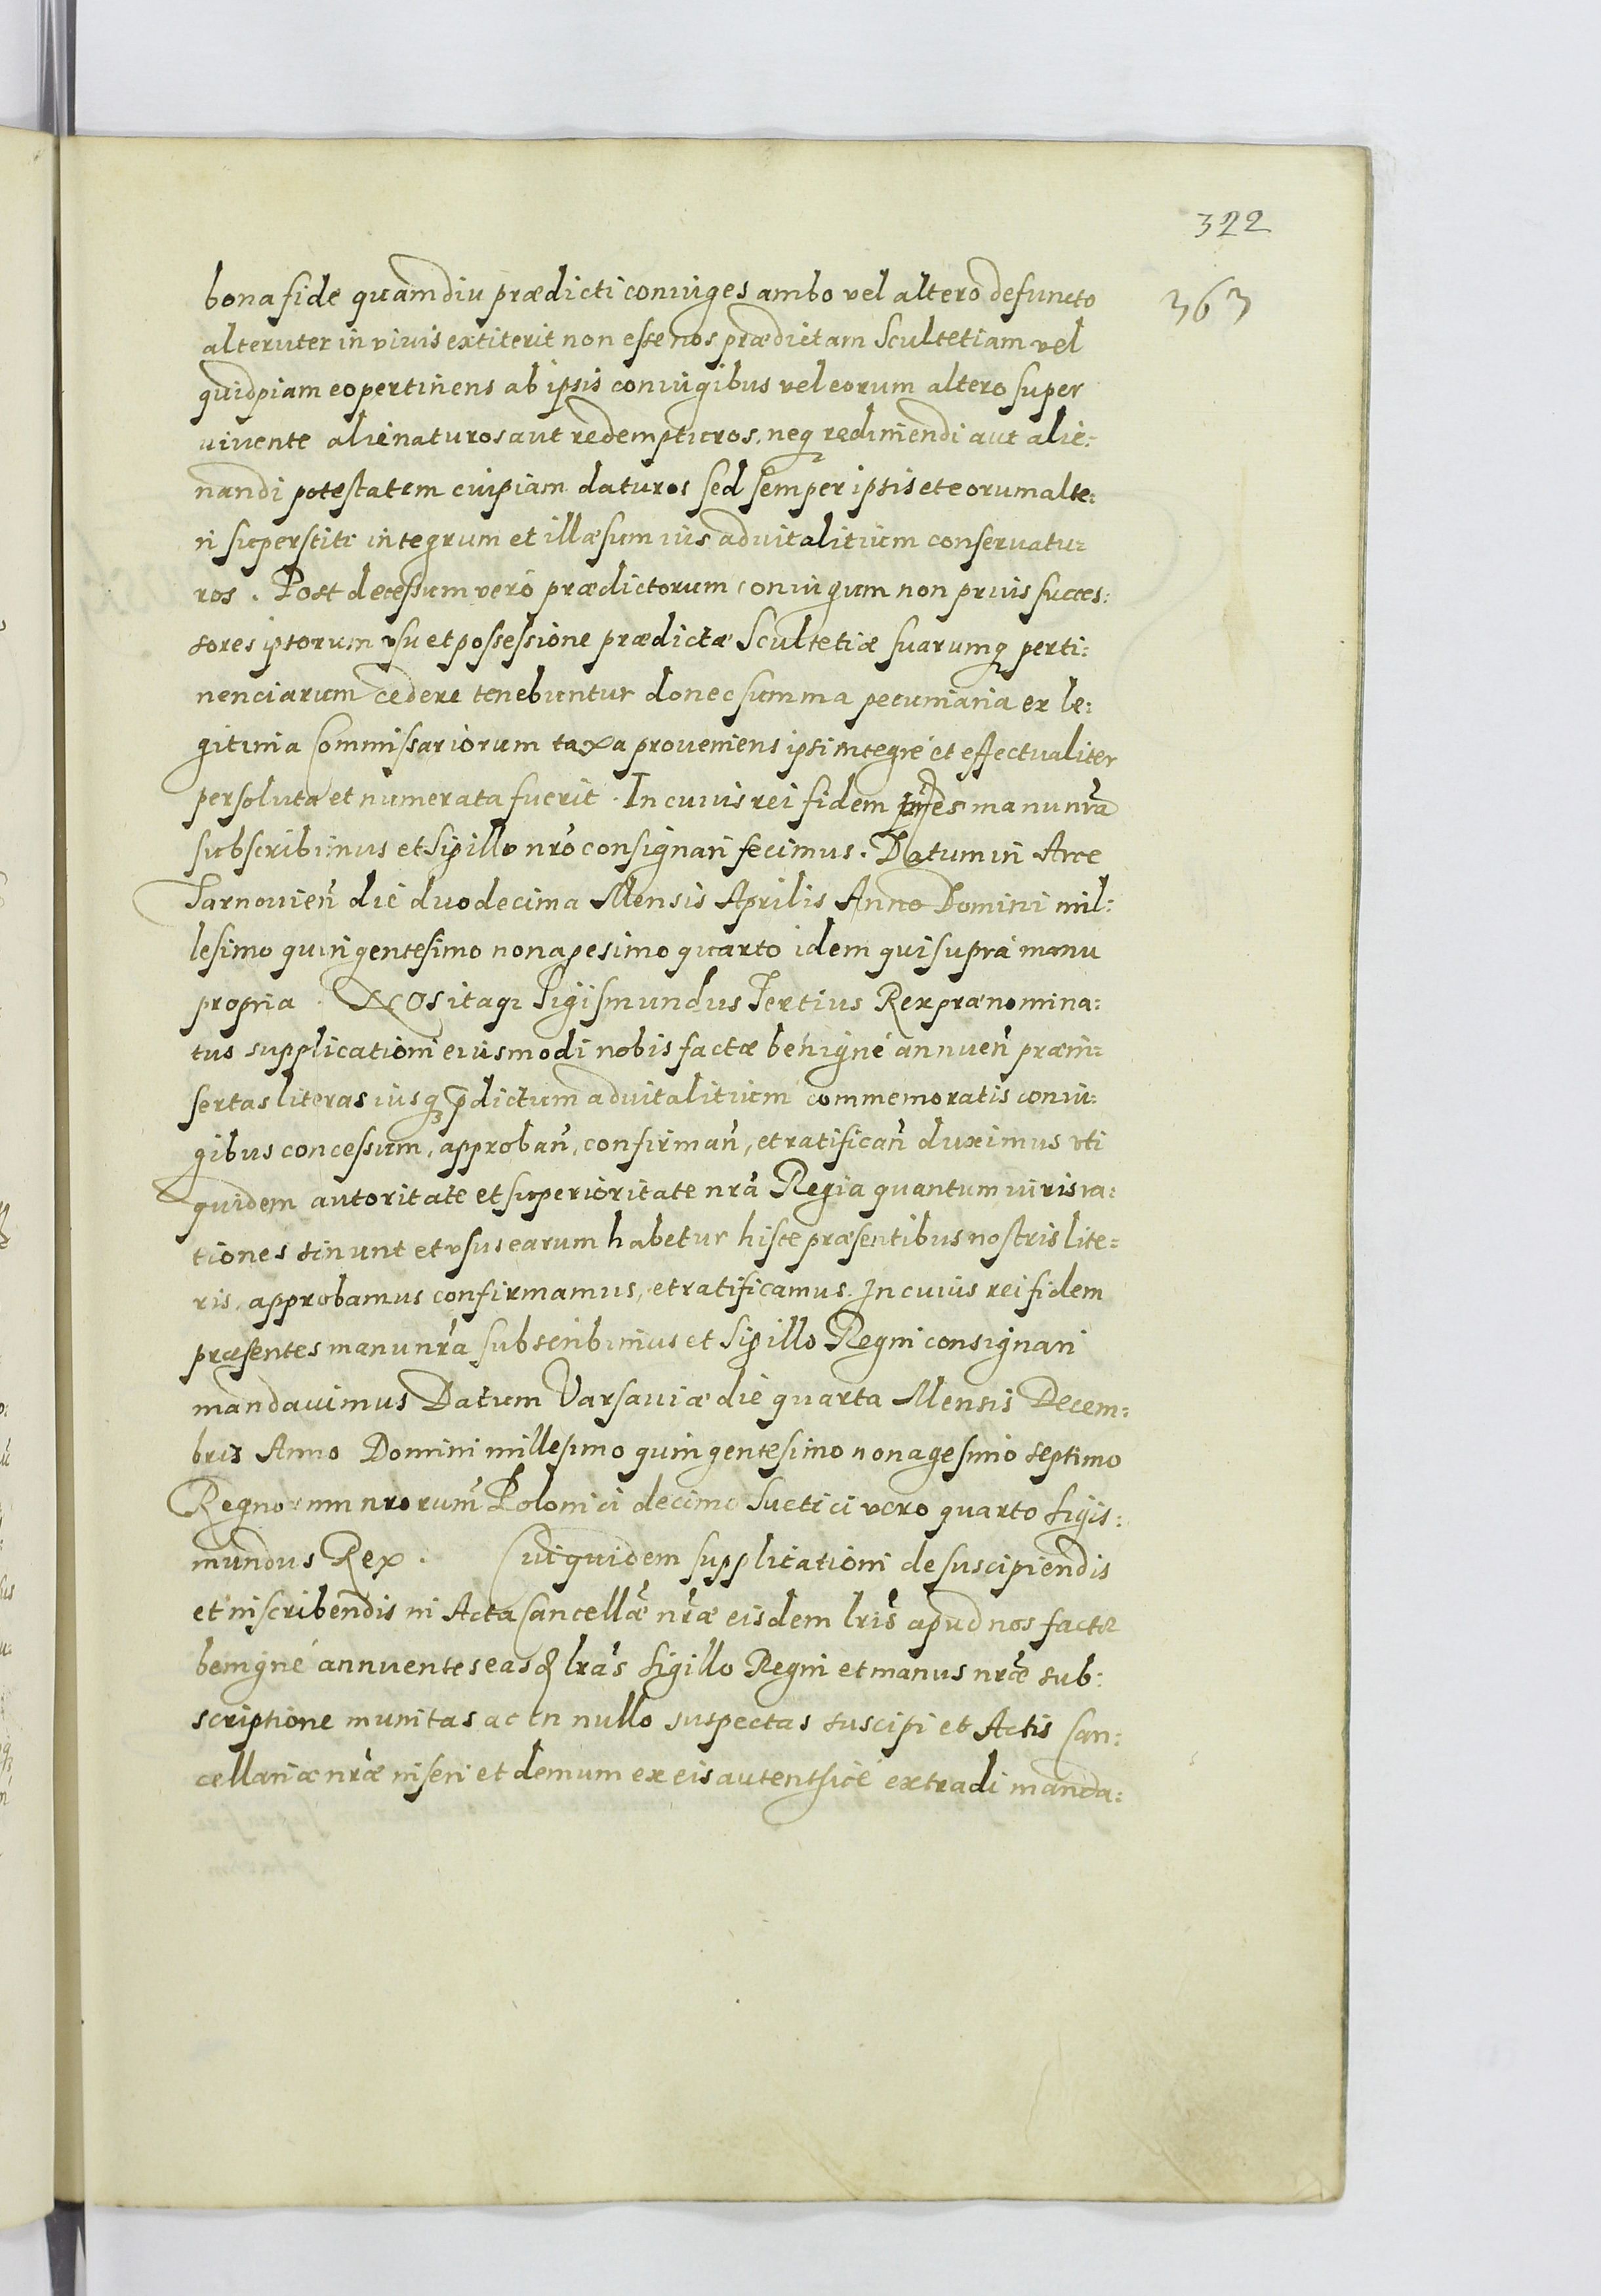 322
363
bona fide quamdiu prædicti coniuges ambo vel altero defuncto
alteruter in vivis extiterit non esse nos prædictam Scultetiam vel
quidpiam eo pertinens ab ipsis coniugibus vel eorum altero super
vivente alienaturos aut redempturos, neq redimendi aut alie:
nandi potestatem cuipiam daturos sed semper ipsis et eorum alte:
ri superstiti integrum et illæsum ius aduitalitium conseruatu:
ros. Post decessum verò prædictorum coniugum non prius succes:
sores ipsorum vsu et possessione prædictæ Scultetiæ suarumq perti:
nenciarum cedere tenebuntur donec summa pecuniaria ex le:
gitima Commissariorum taxa proueniens ipsi integrè et effectualiter
persoluta et numerata fuerit. In cuius rei fidem pntes manu nra
subscribimus et Sigillo nro consignari fecimus. Datum in Arce
Tarnouien die duodecima Mensis Aprilis Anno Domini mil:
lesimo quingentesimo nonagesimo quarto idem qui suprà manu
propria. Nos itaq Sigismundus Tertius Rex prænomina:
tus supplicationi eiusmodi nobis factæ benignè annuen præin:
sertas literas iusq pdictum aduitalitium commemoratis coniu:
gibus concessum, approban, confirman, et ratifican duximus vti
quidem autoritate et superioritate nra Regia quantum iuris ra:
tiones sinunt et vsus earum habetur hisce præsentibus nostris lite:
ris, approbamus confirmamus, et ratificamus. In cuius rei fidem
præsentes manu nra subscribimus et Sigillo Regni consignari
mandauimus Datum Varsauiæ die quarta Mensis Decem:
bris Anno Domini millesimo quingentesimo nonagesimo septimo
Regnorum nrorum Polonici decimo Suetici vero quarto Sigis:
mundus Rex. Cui quidem supplicationi de suscipiendis
et inscribendis in Acta Cancellæ nræ eisdem lris apud nos factæ
benignè annuentes easq lras Sigillo Regni et manus nræ sub:
scriptione munitas ac in nullo suspectas suscipi et Actis Can:
cellariæ nræ inseri et demum ex eis autenthicè extradi manda: